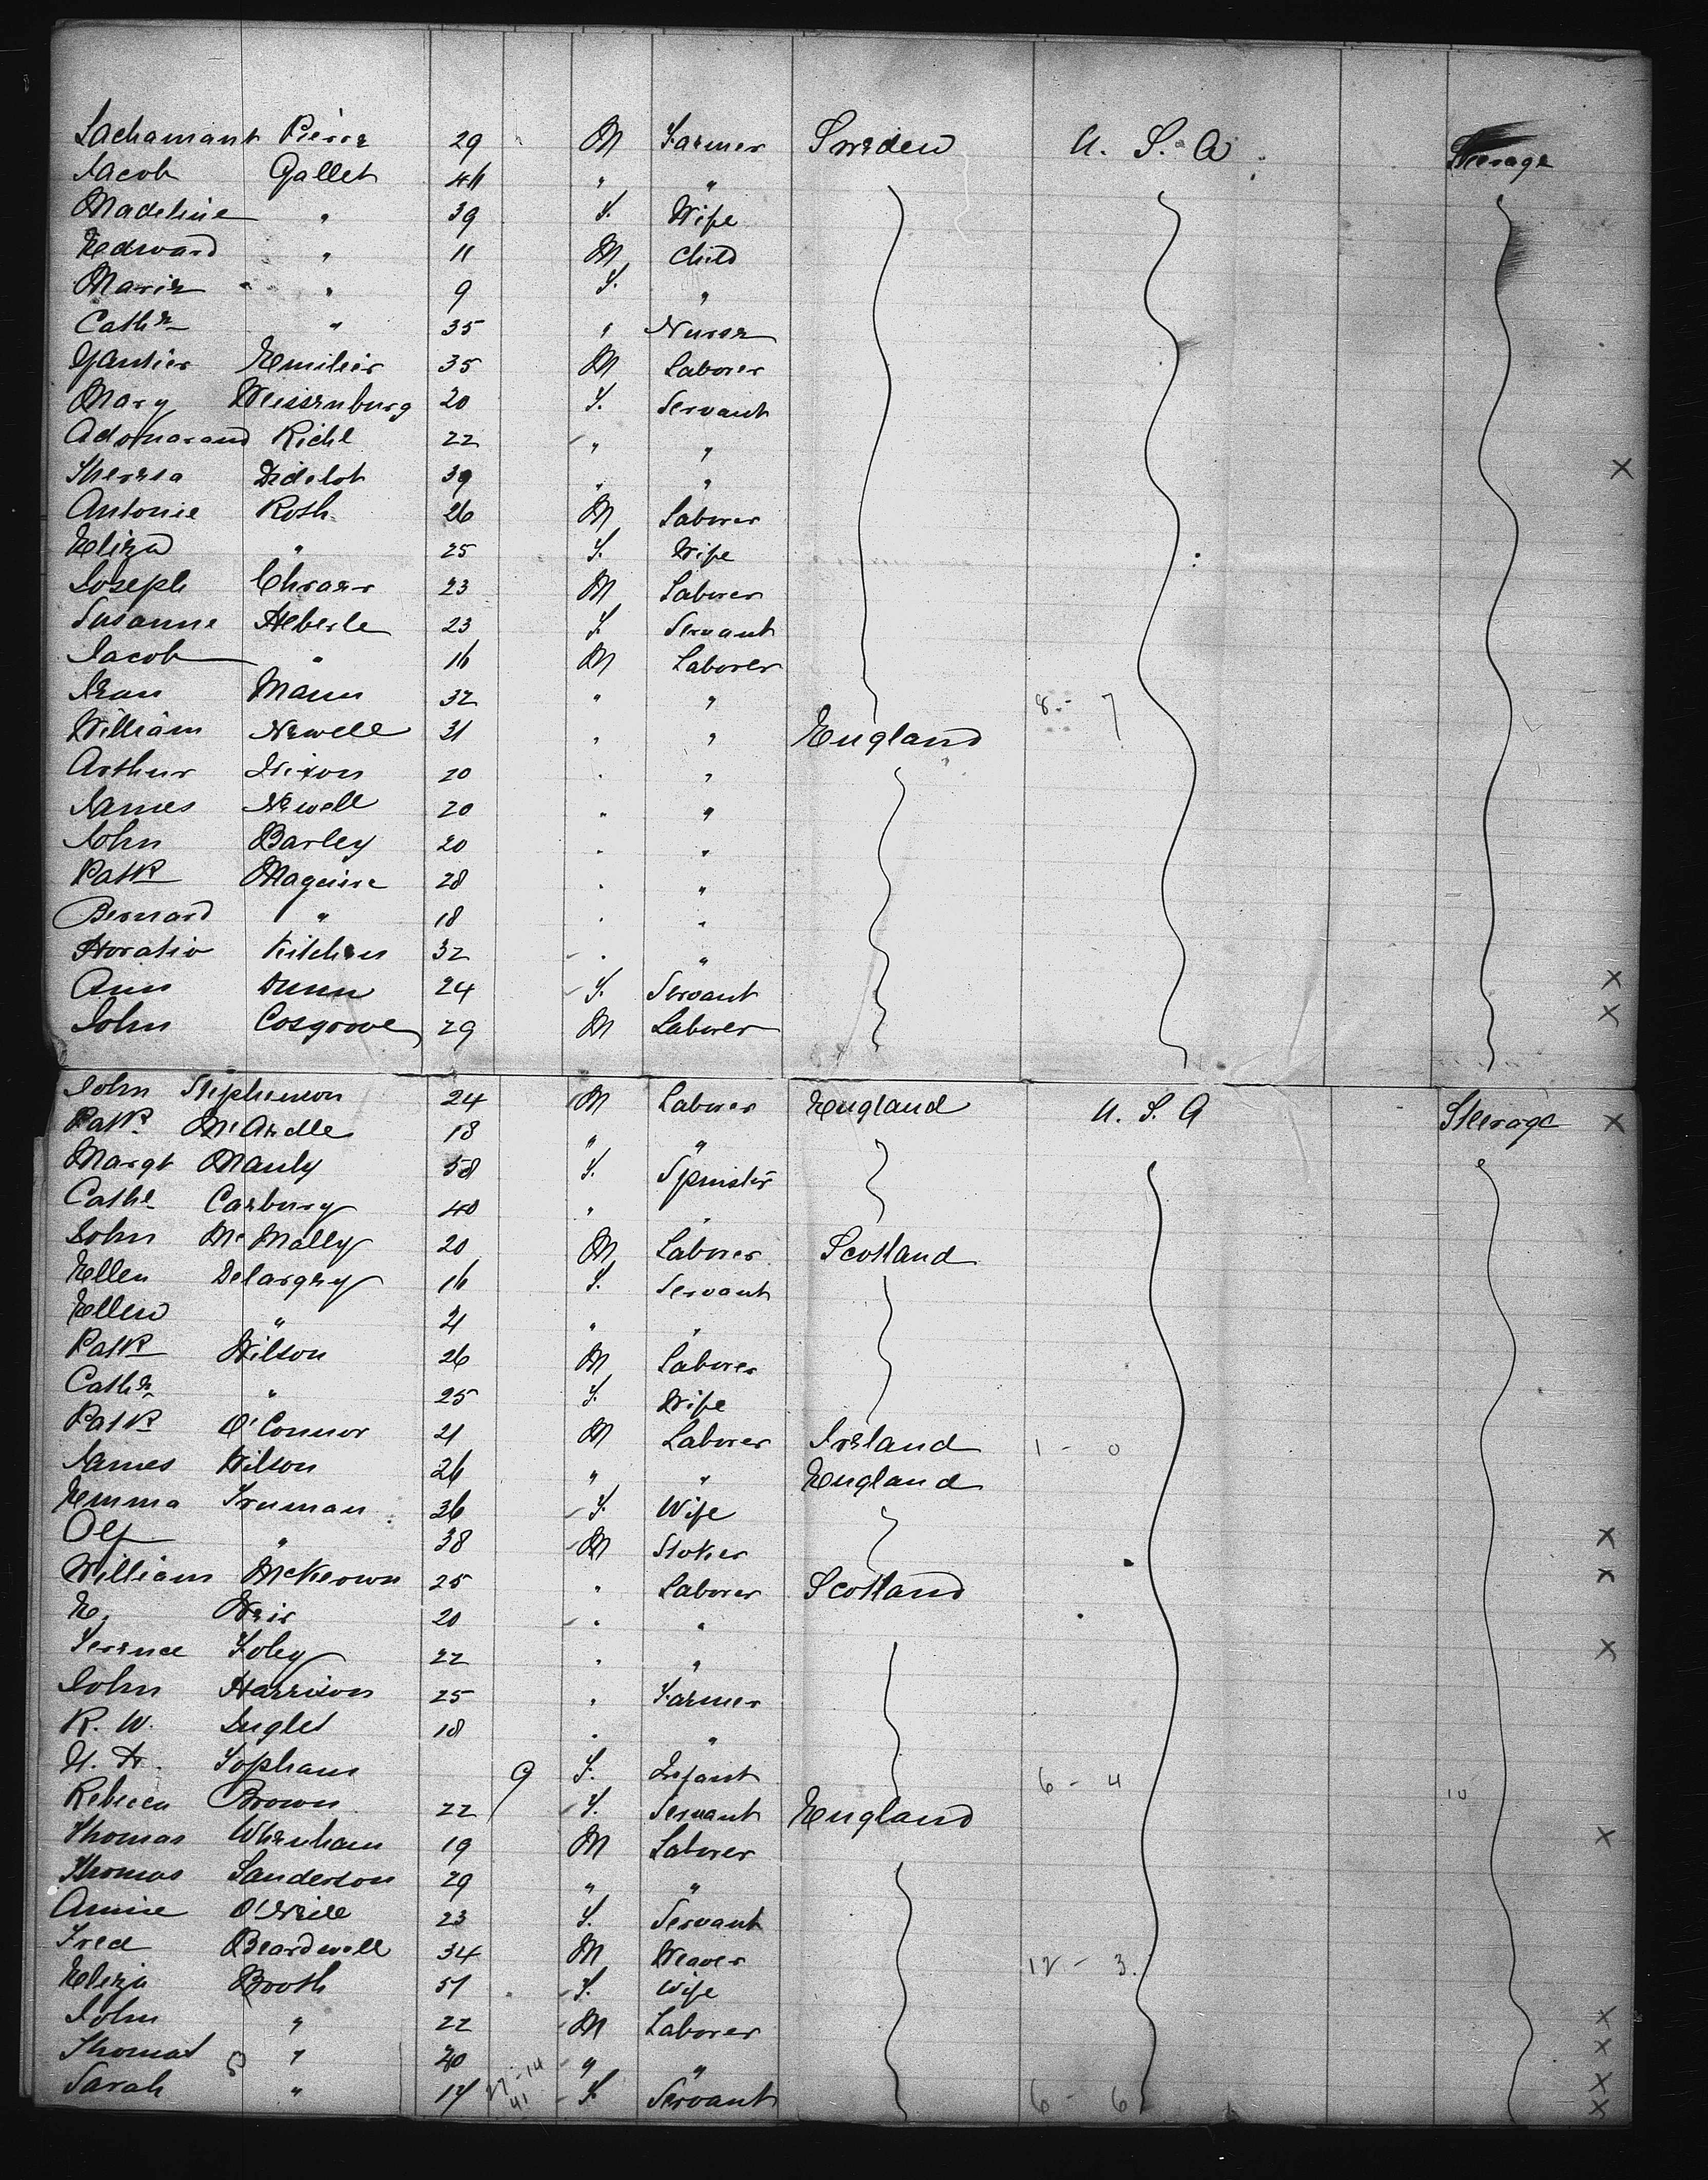 Lachamant Pierre 29 M Farmer Sweden U. S. A. Steerage
Jacob Gallet 46 " "
Madeline " 39 F. Wife
Edward " 11 M Child
Marie " 9 F. "
Cathe " 35 " Nurse
Gautier Emilier 35 M Laborer
Mary Weissenburg 20 F. Servant
Richl 22 " "
Theresa Didelot 39 " "
Antonie Roth 26 M Laborer
Eliza " 25 F. Wife
Joseph 23 M Laborer
Susanne Heberle 23 F. Servant
Jacob " 16 M Laborer
Jean Mann 32 " " 8 - 7
William Newell 31 " " England
Arthur Nixon 20 " "
James Newell 20 " "
John Barley 20 " "
Patk Maguire 28 " "
Bernard " 18 " "
Horatio Kitchen 32 " "
Ann Dunn 24 F. Servant X
John Cosgrove 29 M Laborer X
John Stephenson 24 M Laborer England U. S. A Steerage X
Patk McArdle 18 " "
Margt Manly 58 F. Spinster
Cathe Carbury 40 " "
John McNally 20 M Laborer Scotland
Ellen Delargey 16 F. Servant
Ellen " 21 " "
Patk Wilson 26 M Laborer
Cathe " 25 F. Wife
Patk O'Connor 21 M Laborer Ireland 1 - 0
James Wilson 26 " " England
Emma Truman 36 F. Wife
Alf " 38 M Stoker X
William McKeown 25 " Laborer Scotland X
E. Weir 20 " "
Terence Foley 22 " " X
John Harrison 25 " Farmer
R. W. Inglet 18 " "
Sophaus 9 F. Infant 6 - 4 10
Rebecca Brown 22 F. Servant England
Thomas Whenham 19 M Laborer X
Thomas Sanderson 29 " "
Annie O'Neill 23 F. Servant
Fred Beardwell 34 M Weaver 12 - 3
Eliza Booth 51 F. Wife
John " 22 M Laborer X
Thomas " 20 " " X
Sarah " 17 F. Servant 6 - 6 X